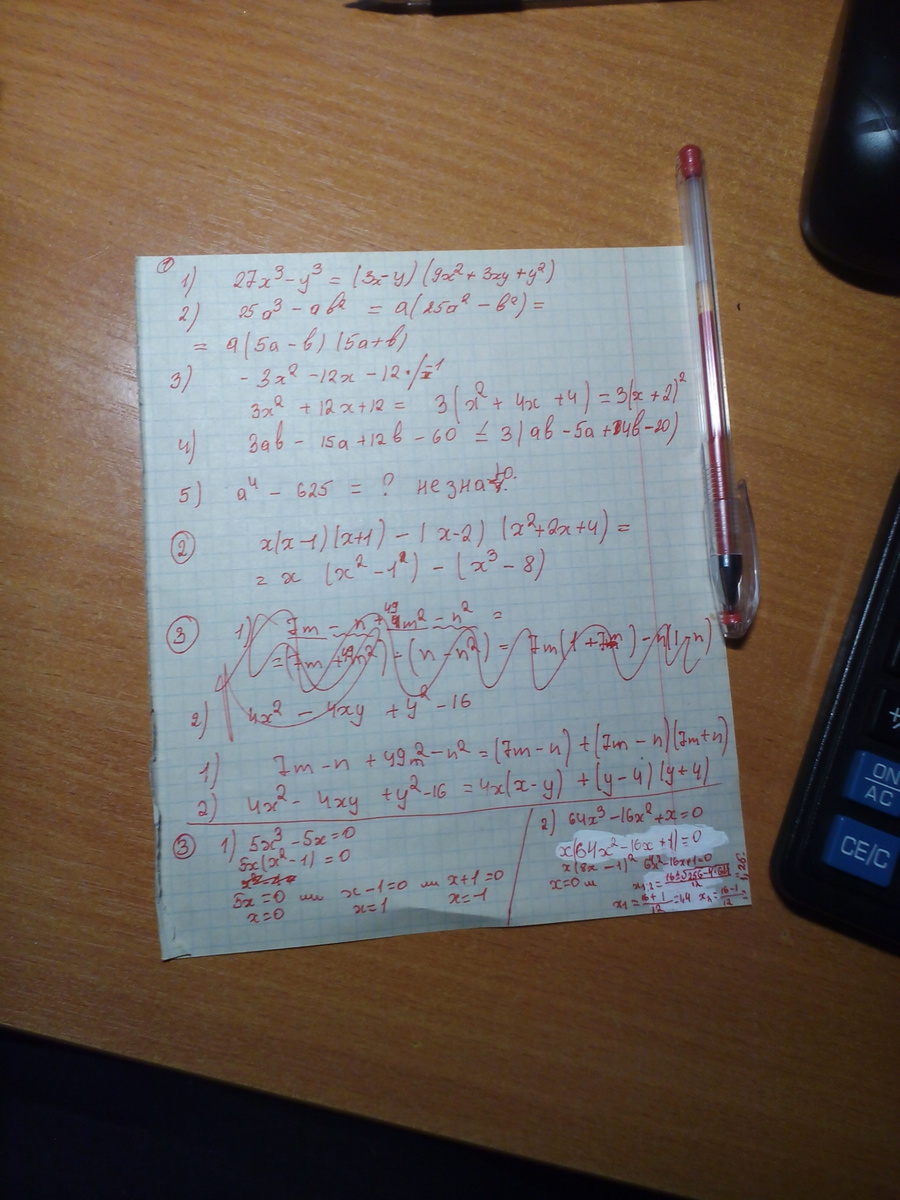 ①
1) 27x³ - y³ = (3x-y) (9x² + 3xy + y²)
2) 25a³ - ab² = a(25a² - b²) =
= a(5a - b) (5a+b)
3) - 3x² - 12x - 12 ·/-1
3x² + 12x + 12 = 3(x² + 4x + 4) = 3(x + 2)²
4) 3ab - 15a + 12b - 60 = 3(ab - 5a + 4b - 20)
5) a⁴ - 625 = ? не знаю.
② x(x-1)(x+1) - (x-2) (x²+2x+4) =
= x (x² - 1²) - (x³ - 8)
③ 1) 7m - n + 49m² - n² =
= (7m + 49m²) - (n - n²) = 7m(1 + 7m) - n(1-n)
2) 4x² - 4xy + y² - 16
1) 7m - n + 49m² - n² = (7m - n) + (7m - n)(7m + n)
2) 4x² - 4xy + y² - 16 = 4x(x - y) + (y - 4) (y + 4)
③ 1) 5x³ - 5x = 0
5x(x² - 1) = 0
5x = 0 или x - 1 = 0 или x + 1 = 0
x = 0 x = 1 x = -1
2) 64x³ - 16x² + x = 0
x(64x² - 16x + 1) = 0
x(8x - 1)² 64x² - 16x + 1 = 0
x = 0 и